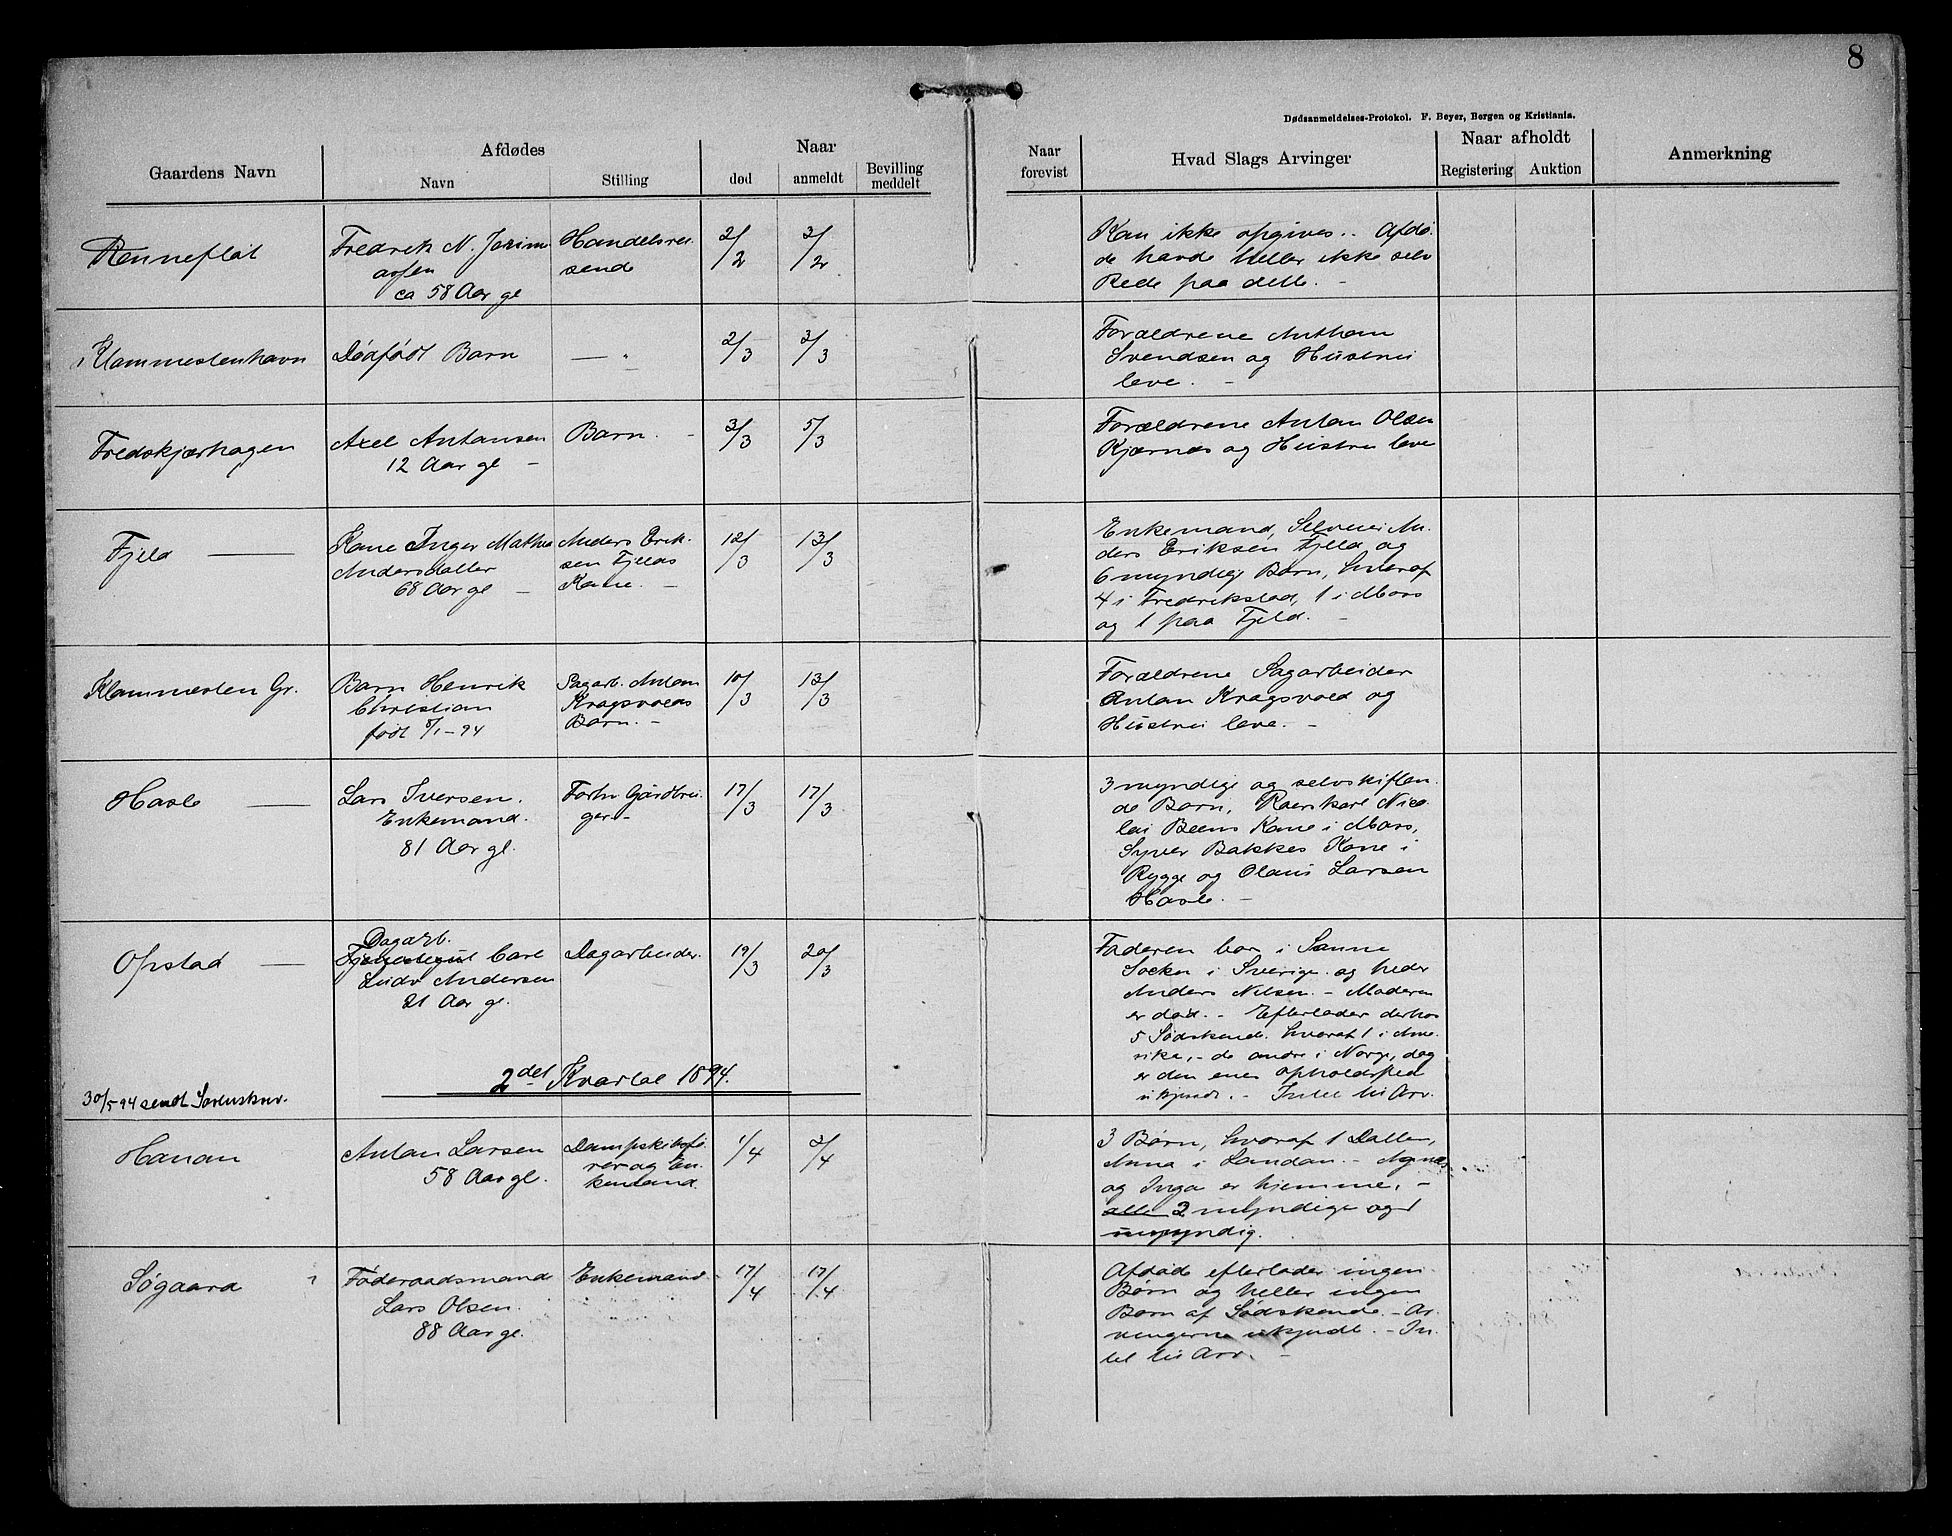 8
Dødsanmeldelses-Protokol. F. Beyer, Bergen og Kristiania.
Gaardens Navn
Afdødes
Navn
Stilling
Naar
død
anmeldt
Bevilling
meddelt
Naar
forevist
Hvad Slags Arvinger
Naar afholdt
Registering
Auktion
Anmerkning
Rennefløt
Fredrik N. Jorim
ca 58 Aar gl
Handelsrei
sende
2/2
3/2
Kan ikke opgives.. Afdø.
de havde heller ikke selv
Rede paa dette. -
Klommestenhavn
Dødfødt Barn
2/3
3/3
Forældrene Anthon
Svendsen og Hustru
leve. -
Fredskjærhagen
Axel Antonsen
12 Aar gl -
Barn. -
3/3
5/3
Forældrene Anton Olsen
Kjærnes og Hustru leve
Fjeld
Kone Inger Mathea
Andersdatter
68 Aar gl -
Anders Erik-
sen Fjelds
Kone. -
12/3
13/3
Enkemand, Selveier An-
ders Eriksen Fjeld og
6 myndige Børn, hvoraf
4 i Fredrikstad, 1 i Moss
og 1 paa Fjeld. -
Klommesten Gr.
Barn Henrik
Christian
født 5/1-94
Sagarb. Anton
Kragsvolds
Barn. -
10/3
13/3
Forældrene Sagarbeider
Anton Kragsvold og
Hustru leve. -
Hasle
Lars Iversen.
Enkemand.
81 Aar gl.
Forhv Gårdbru-
ger. -
17/3
17/3
3 myndige og selvskiften-
de Børn, Roerskarl Nico-
lai Beens Kone i Moss,
Syver Bakkes Kone i
Rygge og Olaus Larsen
Hasle. -
Opstad
Dagarb.
Carl
Ludv Andersen
21 Aar gl.
Dagarbeider.
19/3
20/3
Faderen bor i Sanne
Socken i Sverige. og heder
Anders Nilsen. - Moderen
er død. - Efterlader derhos
5 Sødskende. hvoraf 1 i Ame-
rika, - de andre i Norge, dog
er den enes opholdssted
ukjendt. - Intet til Arv.
2det Kvartal 1894.
30/5 94 sendt Sorenskriv.
Hanan
Anton Larsen
58 Aar gl.
Dampskibsfø-
rer og En-
kemand.
1/4
3/4
3 Børn, hvoraf 1 Datter,
Anna i London. - Agnes
og Inga er hjemme, -
alle 2 myndige og 1
umyndig.
Søgaard
Føderaadsmand
Lars Olsen.
88 Aar gl.
Enkemand.
17/4
17/4
Afdøde efterlader ingen
Børn og heller ingen
Børn af Sødskende. - Ar-
vingerne ukjendt. - In-
tet til Arv. -